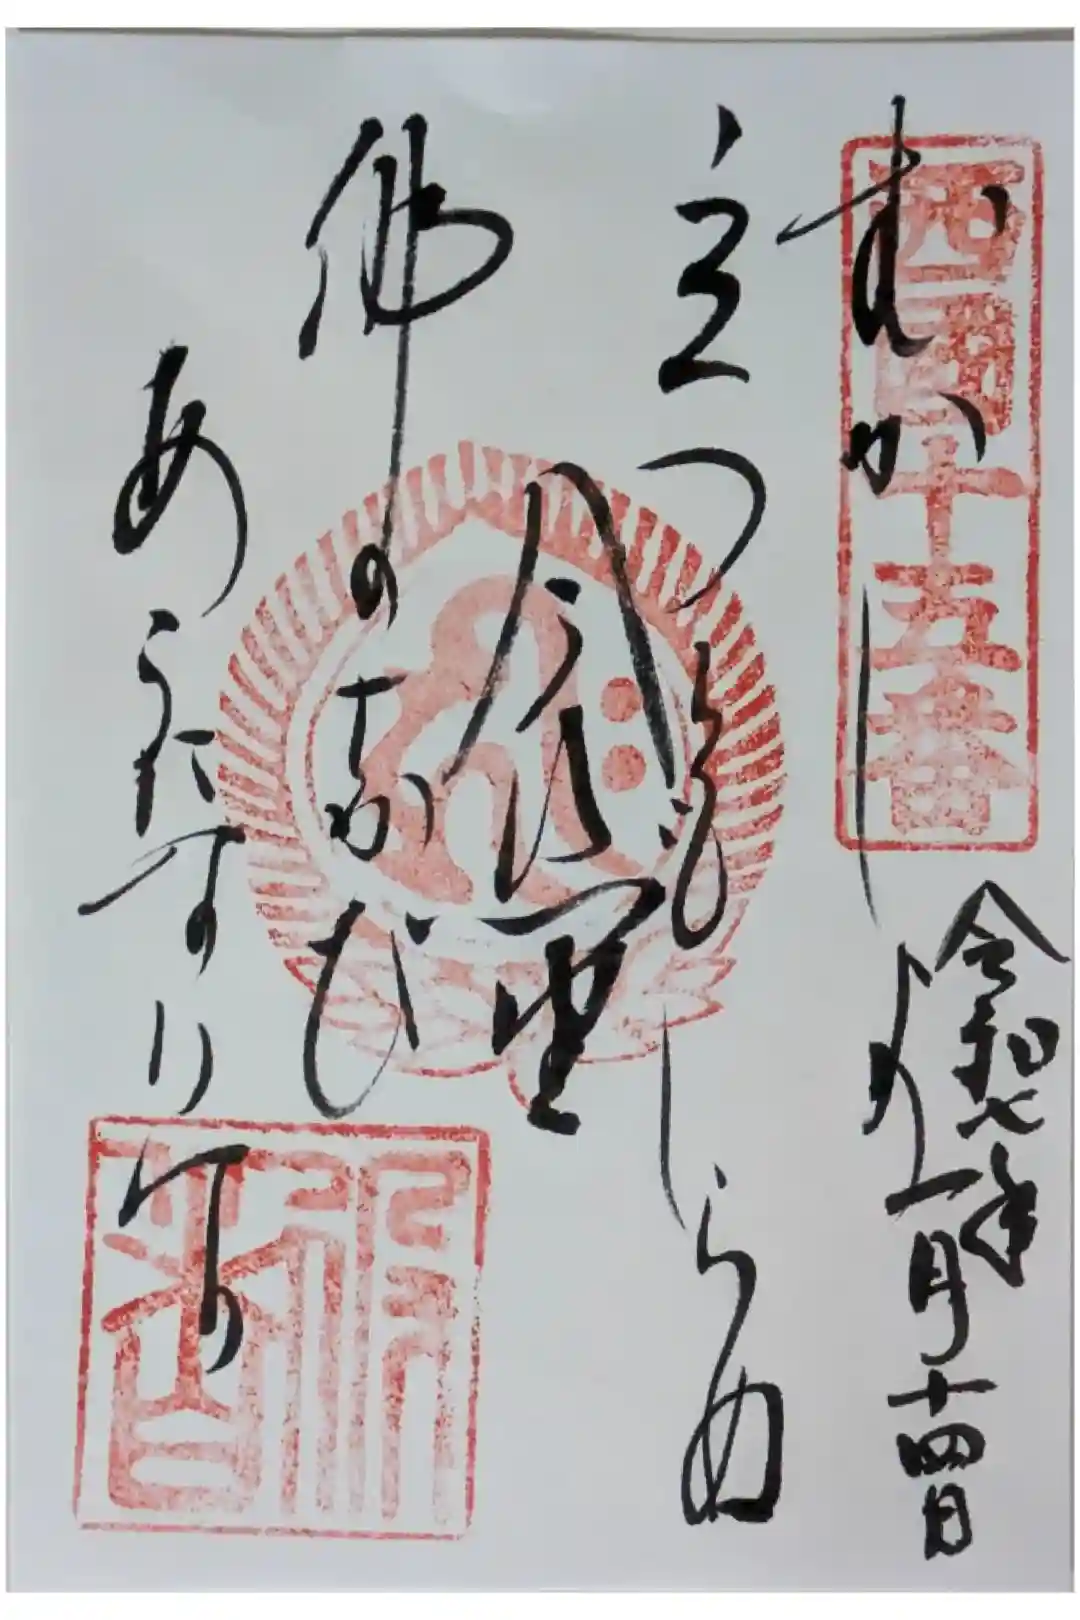 西國十五番
むかしより
令和七年一月十四日
立つともしらぬ
今熊野
佛のちかひ
あらたなりけり